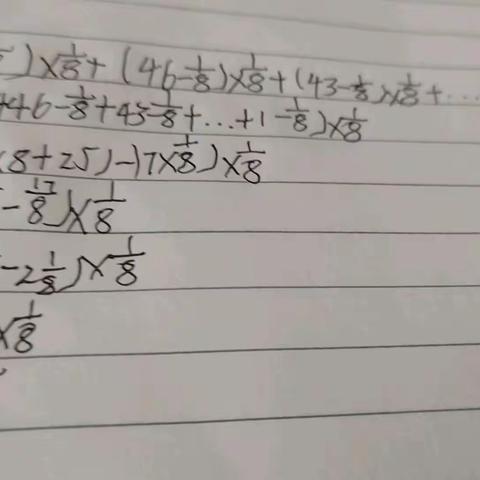 )×1/8+(46-1/8)×1/8+(43-1/8)×1/8+...
+46-1/8+43-1/8+...+1-1/8)×1/8
(8+25)-17×1/8)×1/8
-17/8)×1/8
-2 1/8)×1/8
×1/8